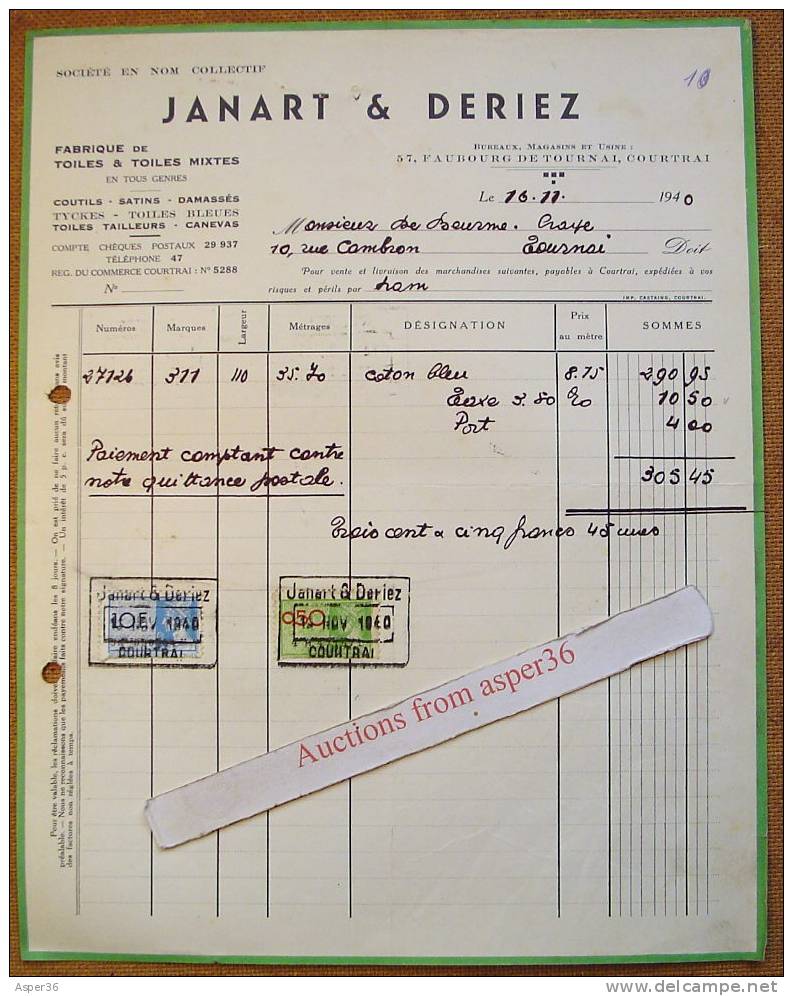 SOCIÉTÉ EN NOM COLLECTIF
10
JANART & DERIEZ
FABRIQUE DE
TOILES & TOILES MIXTES
EN TOUS GENRES
COUTILS - SATINS - DAMASSÉS
TYCKES - TOILES BLEUES
TOILES TAILLEURS - CANEVAS
COMPTE CHÈQUES POSTAUX 29 937
TÉLÉPHONE 47
REG. DU COMMERCE COURTRAI : N° 5288
N°
BUREAUX, MAGASINS ET USINE :
57, FAUBOURG DE TOURNAI, COURTRAI
Le 16.11. 1940
Monsieur De
10, rue Cambron Tournai Doit
Pour vente et livraison des marchandises suivantes, payables à Courtrai, expédiées à vos
risques et périls par tram
IMP. CASTAING, COURTRAI.
Numéros Marques Largeur Métrages DÉSIGNATION Prix au mètre SOMMES
27126 311 110 35.70 coton bleu 8.15 290 95
Taxe 3.80 % 10 50
Port 4 00
Paiement comptant contre
notre quittance postale.
305 45
Trois cent & cinq francs 45 cmes
Janart & Deriez
10F
NOV 1940
COURTRAI
Janart & Deriez
0,50
NOV 1940
COURTRAI
Auctions from asper36
Pour être valable, les réclamations doivent faire endéans les 8 jours. — On est prié de ne faire aucun avis
préalable. — Nous ne reconnaissons que les payements faits contre notre signature. — Un intérêt de 5 p. c. sera dû montant
des factures non réglées à temps.
Asper36
www.delcampe.net